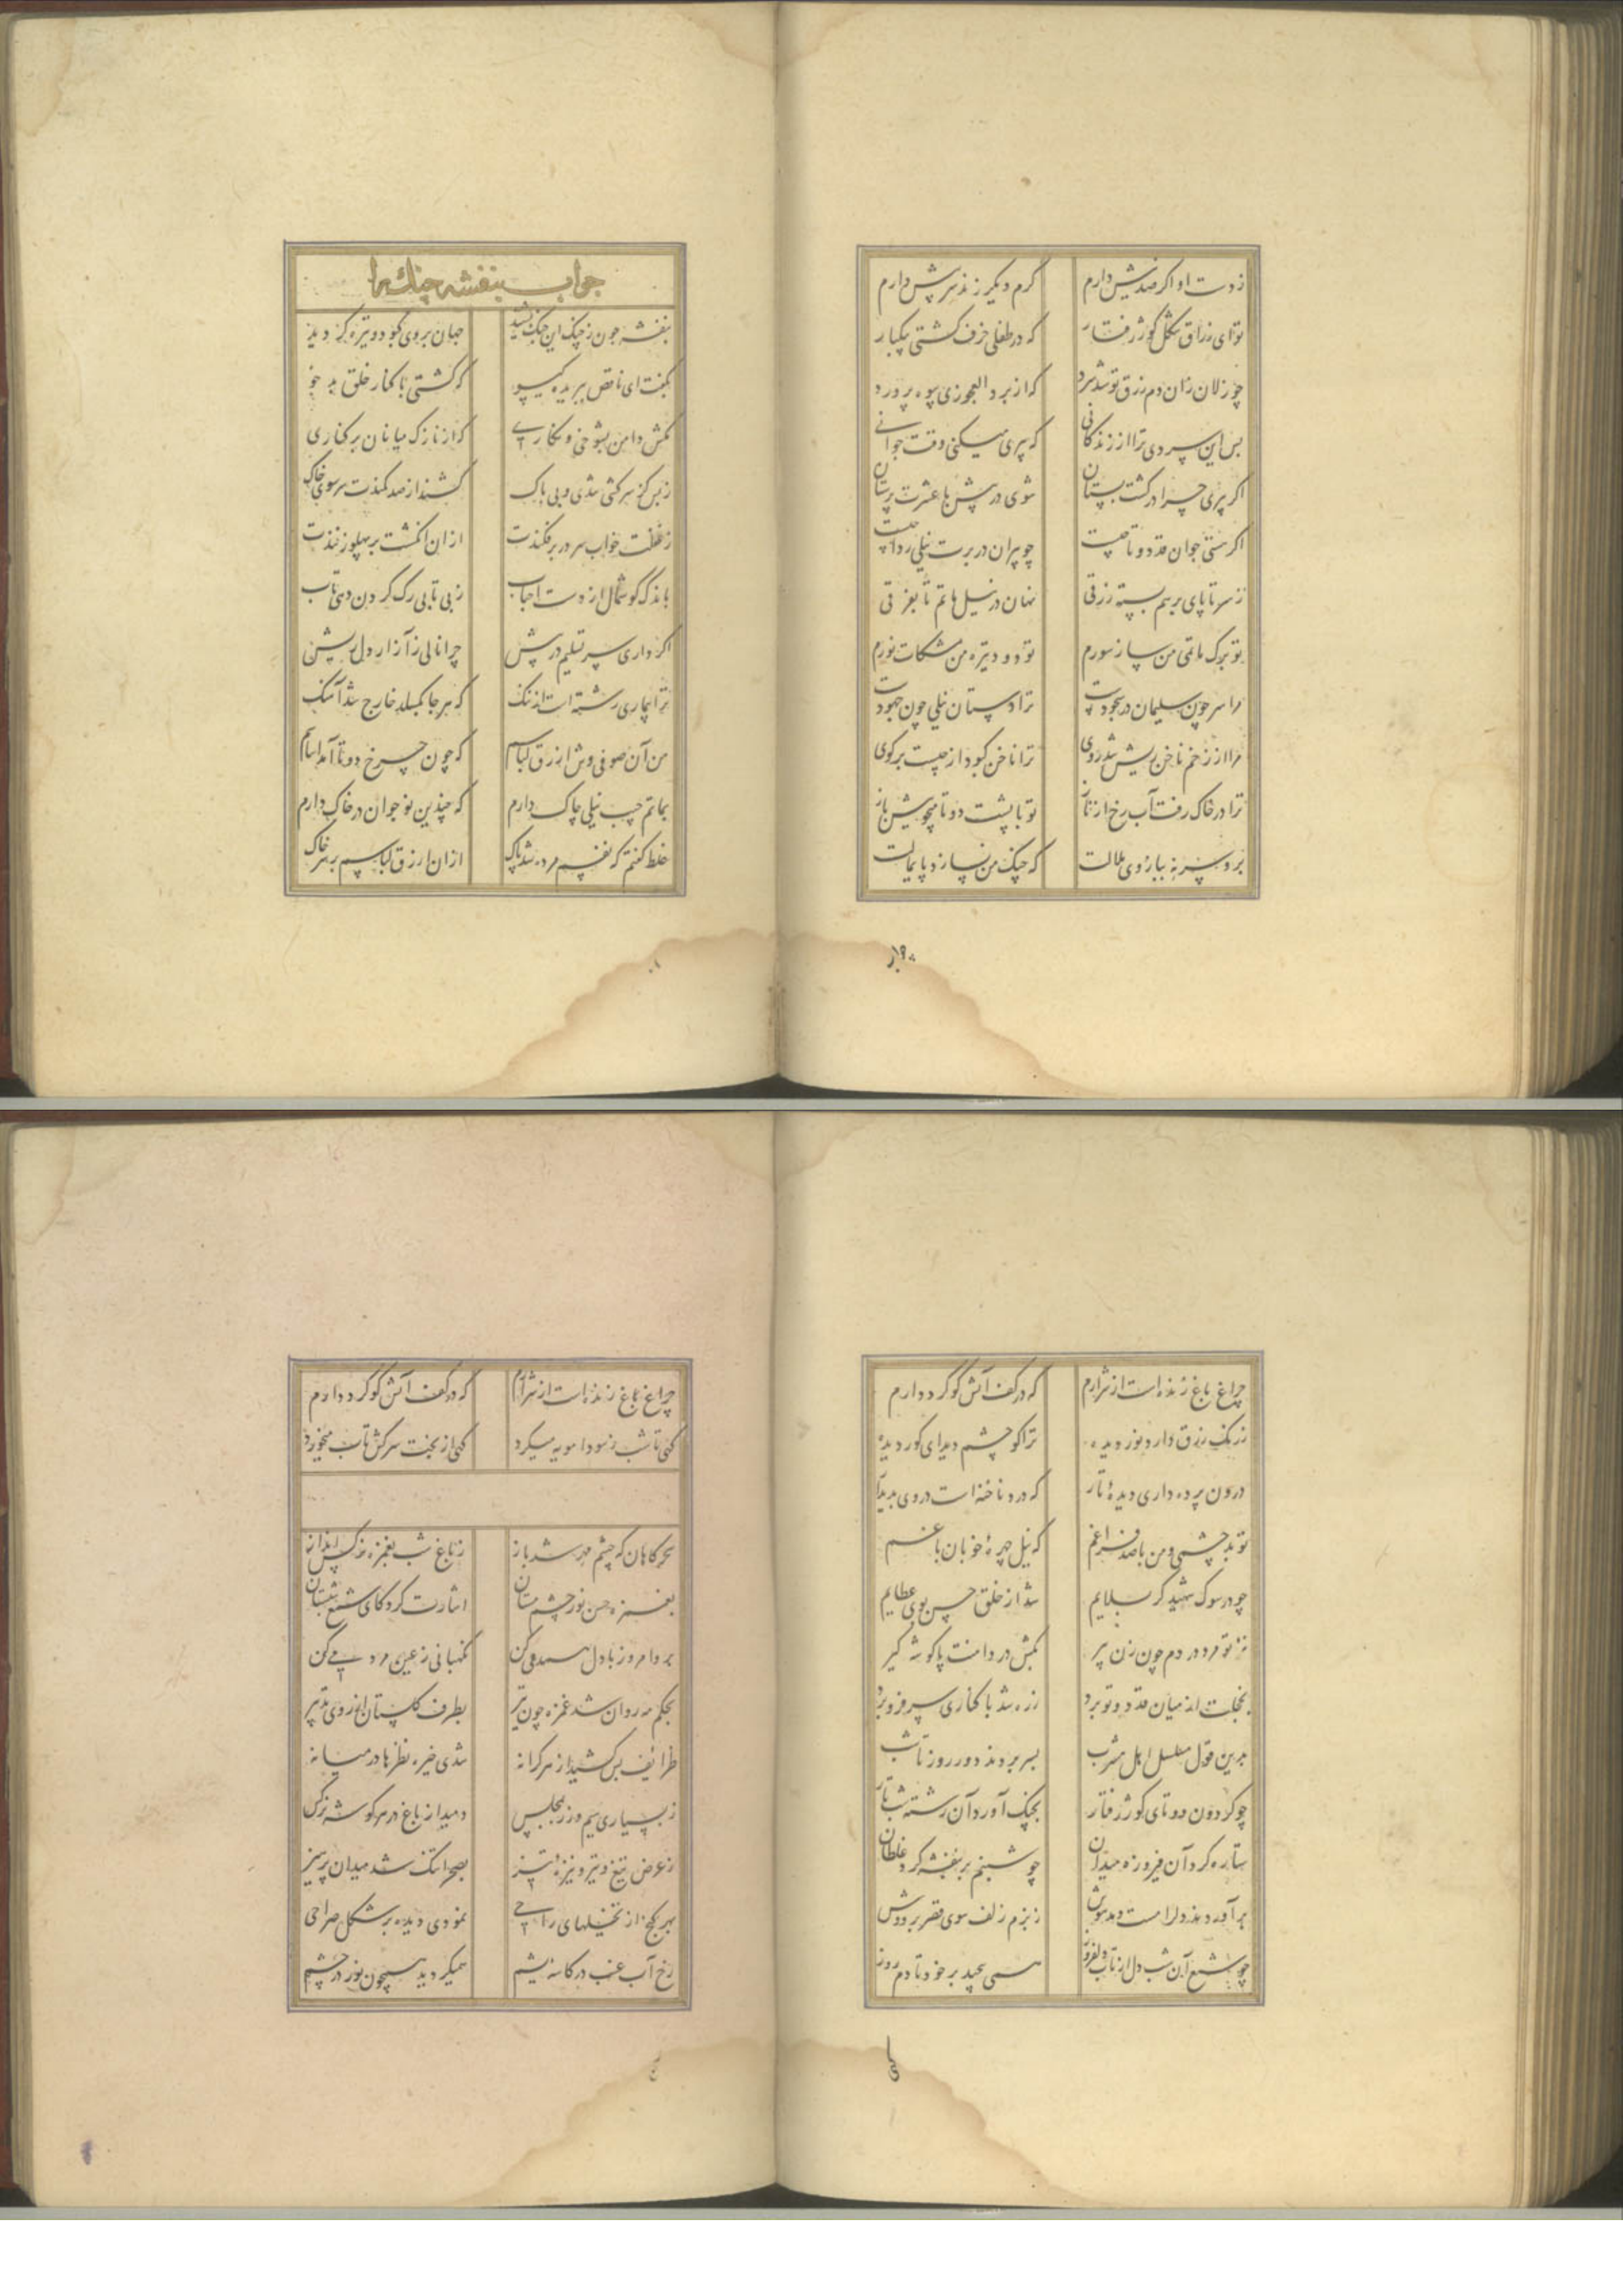 ز دست او اگر صد نیش دارم کرم دیگر زند سر پیش دارم
تو ای زراق شکل کوژ رفتار که در طفلی خرف گشتی یکبار
چو زالان زان دم زرق تو شد سرد که از برد العجوزی پوه پرورد
بس این سردی ترا از زندگانی که پیری میکنی وقت جوانی
اگر پیری چرا در گشت بستان شوی در پیش با عشرت پرستان
اگر هستی جوان قد دوتا چیست چو پیران در برت نیلی ردا چیست
ز سر تا پای بر هم بسته زرقی نهان در نیل ماتم تا بفرقی
تو برگ ماتمی من ساز سورم تو دود تیره من مشکات نورم
مرا سر چون سلیمان در سجودست ترا دستان نیلی چون جهودست
مرا از زخم ناخن ریش شد روی ترا ناخن کبود از چیست برگوی
ترا در خاک رفت آب رخ از ناز تو با پشت دوتا میجویش باز
برو سر نه ببازوی ملالت که چنگ من نسازد پایمالت
جواب بنفشه چنك را
بنفشه چون ز چنگ این چنگ بشنید جهان بروی کبود و تیره گردید
بگفت ای ناقص ببریده گیسو که گشتی با کنار خلق بد خو
بکش دامن بشوخی و نگاری که از نازک میانان بر کناری
ز بس کز سرکشی شدی و بی باک کشند از صد کمندت سر سوی خاک
ز غفلت خواب سر در بر فکندت از ان انگشت بر پهلو زنندت
باندک گوشمال از دست احباب ز بی تابی رگ گردن دهی تاب
اگر داری سر تسلیم در پیش چرا نالی ز آزار دل ریش
ترا بیماری رشته است از ننگ که هر جا بگسلد خارج شد آهنگ
من آن صوفی وش ازرق لباسم که چون چرخ دوتا آمد اساسم
بماتم جیب نیلی چاک دارم که چندین نوجوان در خاک دارم
غلط گفتم که نفسم مرده شد پاک از ان ازرق لباسم بر سر خاک
چراغ باغ زنده است از شرارم که در کف آتش گوگرد دارم
ز رنگ زرق دارد نور دیده ترا کو چشم دید ای کور دیده
درون پرده داری دیدهٔ تار که در وی ناخنه است در وی پدیدار
تو بد چشمی و من با صد فراغم که نیل چهرهٔ خوبان باغم
چو در سوک شهید کربلایم شد از خلق حسن بوی عطایم
نز تو مرد در دم چون زن پیر بکش در دامنت پا گوشه گیر
بخجلت از میان قد دوتو برد ز ره شد با کناری سر فرو برد
بدین قول مسلسل اهل مشرب بسر بردند دور روز تا شب
چو گردون دوتای کوژ رفتار بچنگ آورد آن رشته شب تار
ستاره گرد آن فیروزه میدان چو شبنم بر بنفشه گرد غلطان
بر آوردند دلرا مست و مدهوش ز بزم زلف سوی قصر بر دوش
چو شمع آن شب دل از تاب دلفروز همی پیچید بر خود تا دم روز
چراغ باغ زنده است از شرارم که در کف آتش گوگرد دارم
گهی تا شب ز سودا مویه میکرد گهی از بخت سرکش تاب میخورد
سحرگاهان که چشم مهر شد باز ز باغ شب بغمزه نرگس انداز
بغمزه حسن نور چشم مستان اشارت کرد کای شمع شبستان
برو امروز با دل همدمی کن نگهبانی ز عین مردمی کن
بحکم مه روان شد غمزه چون تیر بطرف گلستان از روی تدبیر
ظرایف بس کشید از هر کرانه شدی خیره نظرها در میانه
ز بسیاری سیم و زر بمجلس دمید از باغ در هر گوشه نرگس
ز عرض تیغ و تیر و نیزهٔ تیز بصحرا تنگ شد میدان پرهیز
بهر کنج از نخلهای راحی نمودی دیده بر شکل صراحی
رخ آب عنب در کاسهٔ یشم همیگردید همچون نور در چشم